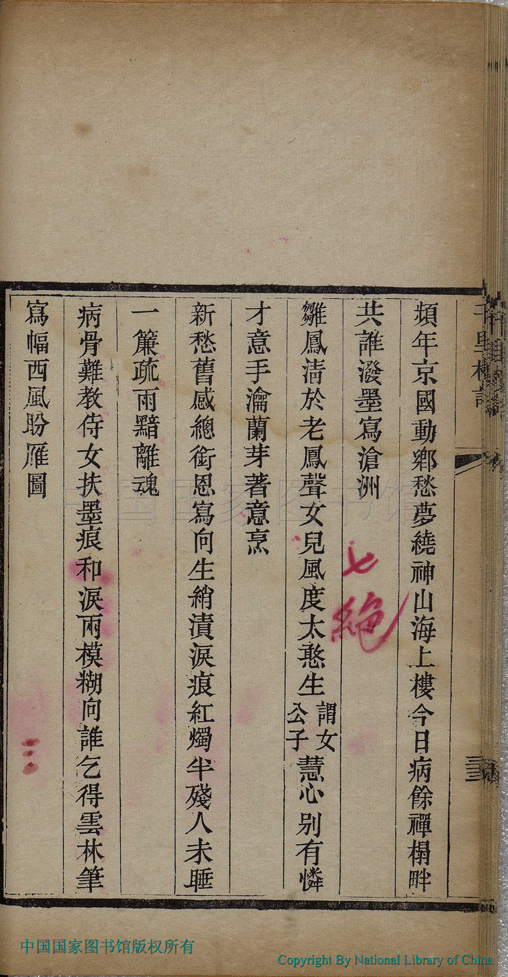 頻年京國動鄉愁夢繞神山海上樓今日病餘禪榻畔
共誰潑墨寫滄洲
雛鳳淸於老鳳聲女兒風度太憨生謂女公子慧心別有憐
才意手瀹蘭芽著意烹
新愁舊感總銜恩寫向生綃漬淚痕紅燭半殘人未睡
一簾疏雨黯離魂
病骨難教侍女扶墨痕和淚兩模糊向誰乞得雲林筆
寫幅西風盼雁圖
七絕
三
中国国家图书馆版权所有
Copyright By National Library of China